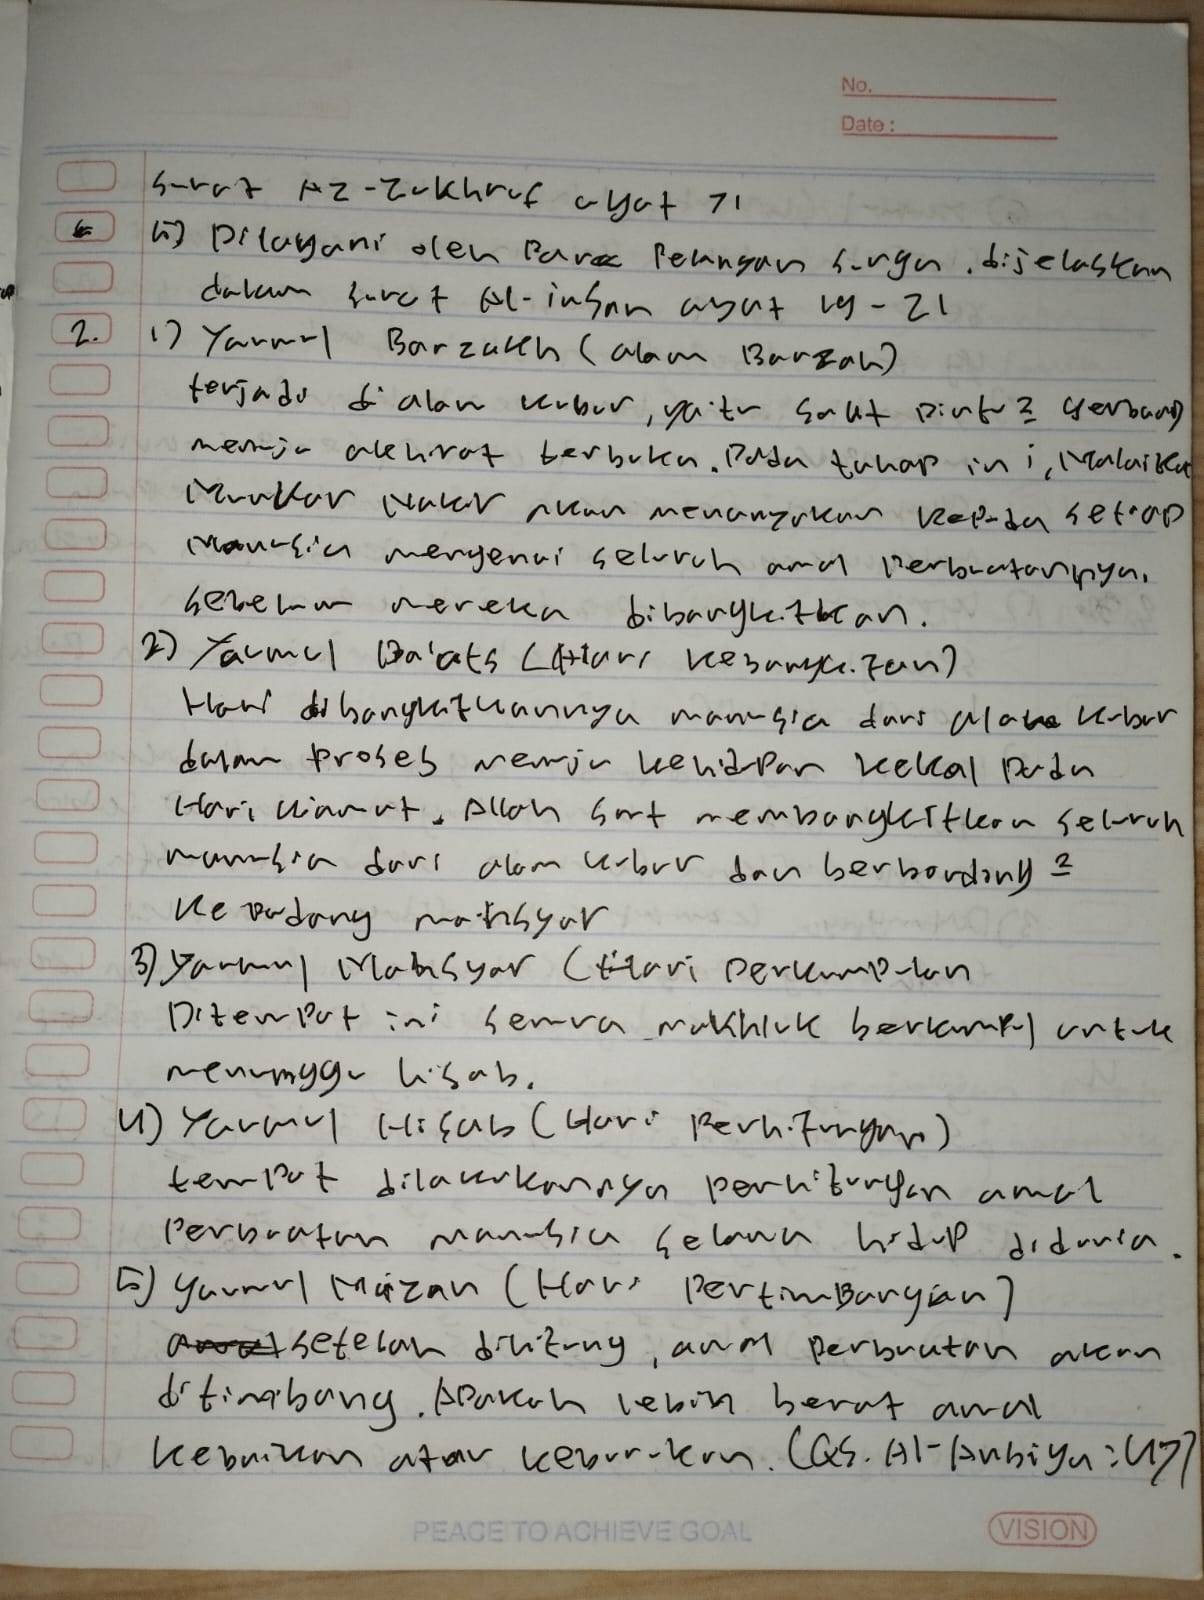 No.
Date :
surat Az-Zukhruf ayat 71
5) Dilayani oleh Para Pelayan surga. dijelaskan
dalam surat Al-insan ayat 19-21
2. 1) Yaumul Barzakh (alam Barzah)
terjadi di alam kubur, yaitu saat pintu2 gerbang
menuju akhirat terbuka. Pada tahap ini, Malaikat
Munkar Nakir akan menanyakan kepada setiap
Manusia mengenai seluruh amal Perbuatannya.
sebelum mereka dibangkitkan.
2) Yaumul Ba'ats (Hari kebangkitan)
Hari dibangkitkannya manusia dari alam kubur
dalam proses menuju kehidupan kekal pada
Hari kiamat. Allah swt membangkitkan seluruh
manusia dari alam kubur dan berbondong2
ke padang mahsyar
3) Yaumul Mahsyar (Hari perkumpulan
Ditempat ini semua makhluk berkumpul untuk
menunggu hisab.
4) Yaumul Hisab (Hari Perhitungan)
tempat dilakukannya perhitungan amal
Perbuatan manusia selama hidup didunia.
5) Yaumul Mizan (Hari Pertimbangan)
setelah dihitung, amal perbuatan akan
ditimbang. Apakah lebih berat amal
kebaikan atau keburukan. (QS. Al-Anbiya:47)
PEACE TO ACHIEVE GOAL
VISION